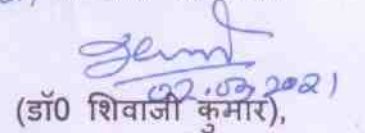 22.09.2021
(डॉ0 शिवाजी कुमार),